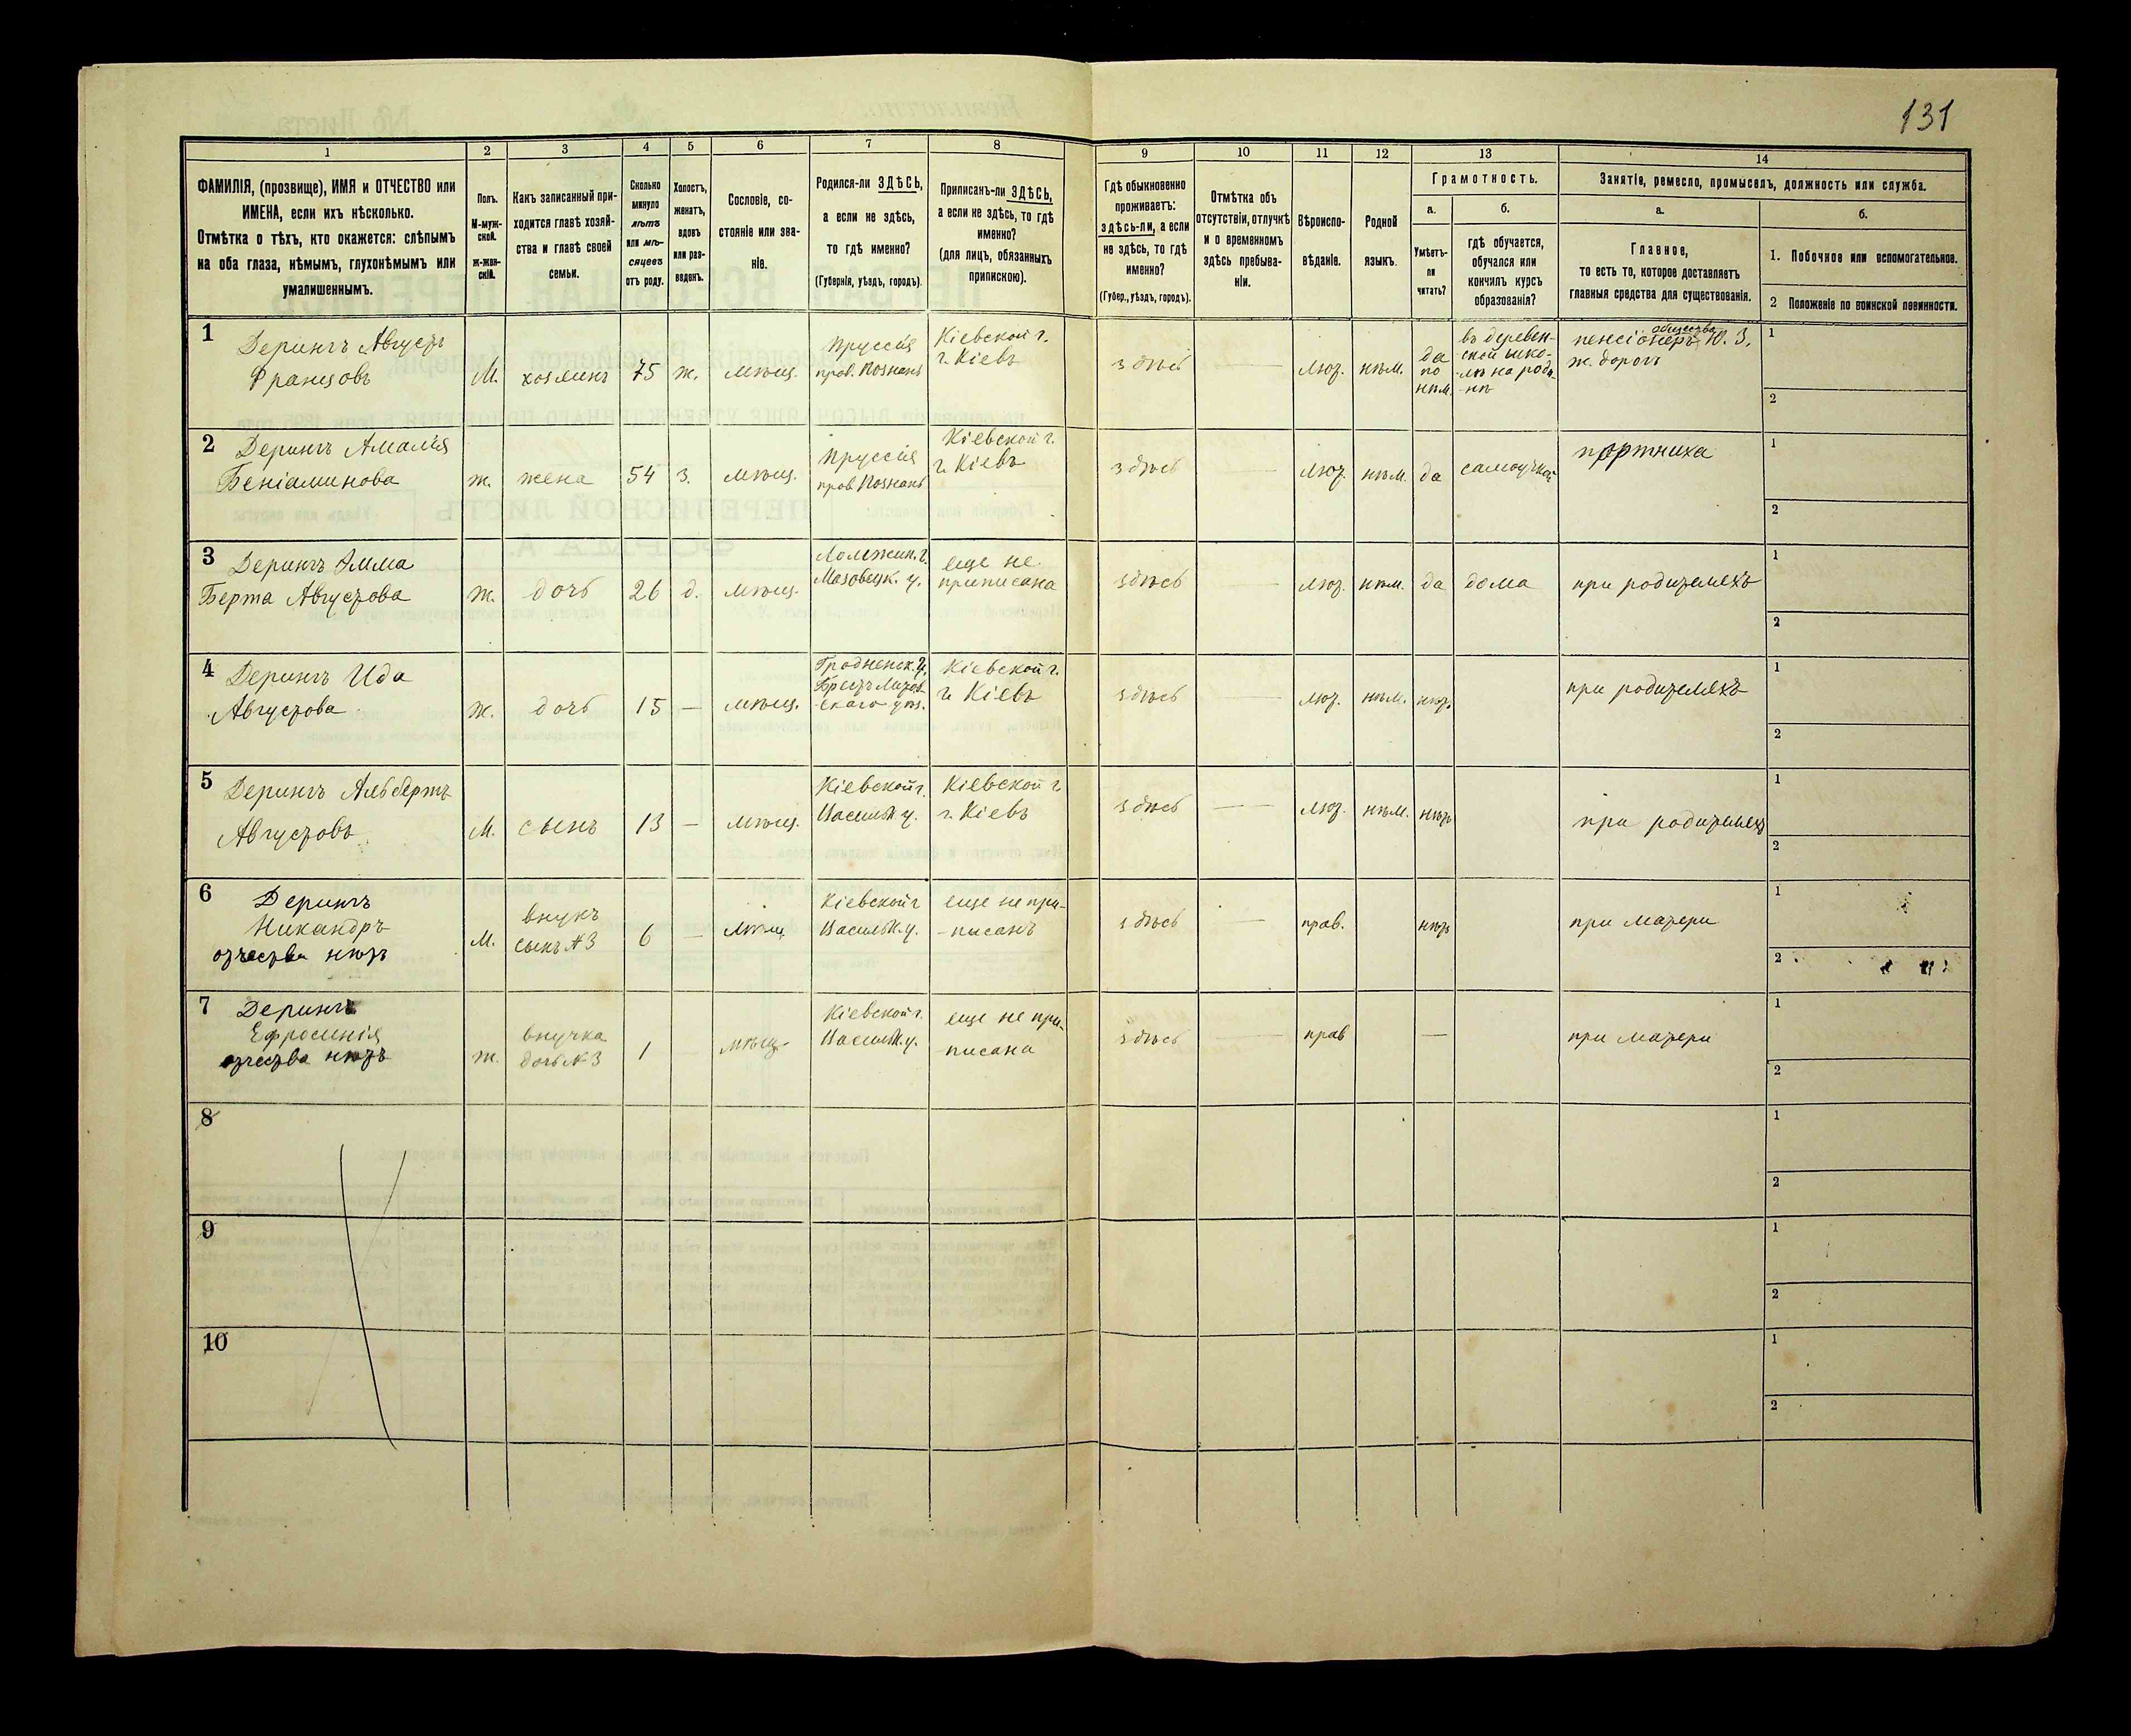 131
1 2 3 4 5 6 7 8 9 10 11 12 13 14
ФАМИЛІЯ, (прозвище), ИМЯ и ОТЧЕСТВО или
ИМЕНА, если ихъ нѣсколько.
Отмѣтка о тѣхъ, кто окажется: слѣпымъ
на оба глаза, нѣмымъ, глухонѣмымъ или
умалишеннымъ.
Полъ.
М-муж-
ской.
ж-жен-
скій.
Какъ записанный при-
ходится главѣ хозяй-
ства и главѣ своей
семьи.
Сколько
минуло
лѣтъ
или мѣ-
сяцевъ
отъ роду.
Холостъ,
женатъ,
вдовъ
или раз-
веденъ.
Сословіе, со-
стояніе или зва-
ніе.
Родился-ли ЗДѢСЬ,
а если не здѣсь,
то гдѣ именно?
(Губернія, уѣздъ, городъ).
Приписанъ-ли ЗДѢСЬ,
а если не здѣсь, то гдѣ
именно?
(для лицъ, обязанныхъ
припискою).
Гдѣ обыкновенно
проживаетъ:
здѣсь-ли, а если
не здѣсь, то гдѣ
именно?
(Губер., уѣздъ, городъ).
Отмѣтка объ
отсутствіи, отлучкѣ
и о временномъ
здѣсь пребыва-
ніи.
Вѣроиспо-
вѣданіе.
Родной
языкъ.
Грамотность.
а.
Умѣетъ-
ли
читать?
б.
гдѣ обучается,
обучался или
кончилъ курсъ
образованія?
Занятіе, ремесло, промыселъ, должность или служба.
а.
Главное,
то есть то, которое доставляетъ
главныя средства для существованія.
б.
1. Побочное или вспомогательное.
2 Положеніе по воинской повинности.
1
Дерингъ Августъ
Францовъ
М.
хозяинъ
75
ж.
мѣщ.
Пруссія
пров. Познань
Кіевской г.
г. Кіевъ
здѣсь
лют.
нѣм.
да
по
нѣм.
въ деревен-
-ской шко-
-лѣ на роди-
-нѣ
общества
пенсіонеръ Ю. З.
ж. дорогъ
1
2
2
Дерингъ Амалія
Беніаминова
ж.
жена
54
з.
мѣщ.
Пруссія
пров. Познань
Кіевской г.
г. Кіевъ
здѣсь
лют.
нѣм.
да
самоучкой
портниха
1
2
3
Дерингъ Эмма
Берта Августова
ж.
дочь
26
д.
мѣщ.
Ломжин. г.
Мазовецк. у.
еще не
приписана
здѣсь
лют.
нѣм.
да
дома
при родителяхъ
1
2
4
Дерингъ Ида
Августова
ж.
дочь
15
—
мѣщ.
Гродненск. г.
Брестъ Литов-
-скаго уѣз.
Кіевской г.
г. Кіевъ
здѣсь
лют.
нѣм.
нѣтъ
при родителяхъ
1
2
5
Дерингъ Альбертъ
Августовъ
М.
сынъ
13
—
мѣщ.
Кіевской г.
Васильк. у.
Кіевской г.
г. Кіевъ
здѣсь
лют.
нѣм.
нѣтъ
при родителяхъ
1
2
6
Дерингъ
Никандръ
отчества нѣтъ
М.
внукъ
сынъ №3
6
—
мѣщ.
Кіевской г
Васильк. у.
еще не при-
-писанъ
здѣсь
прав.
нѣтъ
при матери
1
2
7
Дерингъ
Ефросинія
отчества нѣтъ
ж.
внучка
дочь №3
1
мѣщ.
Кіевской г.
Васильк. у.
еще не при-
-писана
здѣсь
прав
—
при матери
1
2
8
1
2
9
1
2
10
1
2